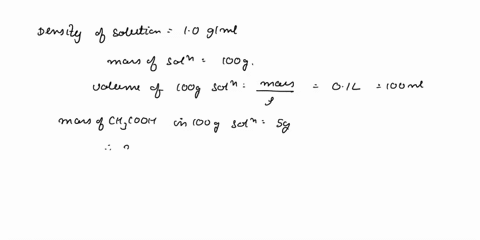 Density of solution = 1.0 g/ml
mass of solⁿ = 100g.
Volume of 100g solⁿ = mass/ρ = 0.1L = 100ml
mass of CH₃COOH in 100g solⁿ = 5g
∴